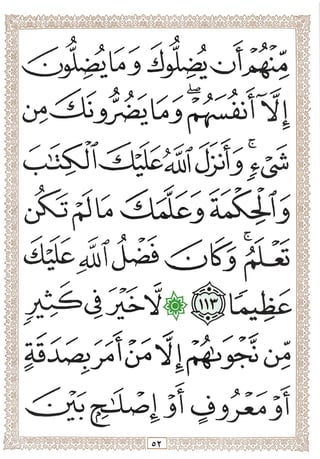 مِّنْهُمْ أَن يُضِلُّوكَ وَمَا يُضِلُّونَ
إِلَّآ أَنفُسَهُمْ ۖ وَمَا يَضُرُّونَكَ مِن
شَىْءٍ ۚ وَأَنزَلَ ٱللَّهُ عَلَيْكَ ٱلْكِتَٰبَ
وَٱلْحِكْمَةَ وَعَلَّمَكَ مَا لَمْ تَكُن
تَعْلَمُ ۚ وَكَانَ فَضْلُ ٱللَّهِ عَلَيْكَ
عَظِيمًا ١١٣ ۞ لَّا خَيْرَ فِى كَثِيرٍ
مِّن نَّجْوَىٰهُمْ إِلَّا مَنْ أَمَرَ بِصَدَقَةٍ
أَوْ مَعْرُوفٍ أَوْ إِصْلَٰحٍۭ بَيْنَ
٥٢